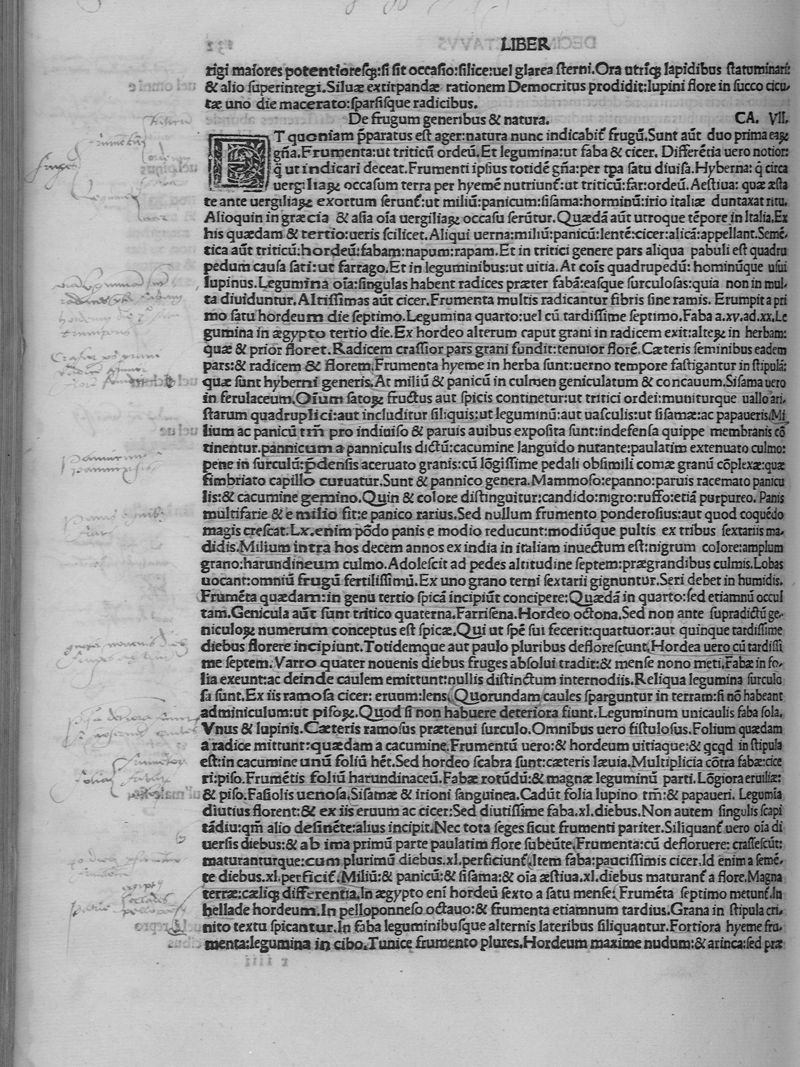 LIBER
rigi maiores potentioreſq;:ſi ſit occaſio:ſilice:uel glarea ſterni.Ora utriſq; lapidibus ſtatuminari:
& alio ſuperintegi.Siluæ extirpandæ rationem Democritus prodidit:lupini flore in ſucco cicu
tæ uno die macerato:ſparſiſque radicibus.
De frugum generibus & natura. CA. VII.
ET quoniam p̄paratus eſt ager:natura nunc indicabit᷑ frugū.Sunt aūt duo prima eaꝝ
gn̄a.Frumenta:ut triticū ordeū.Et legumina:ut faba & cicer. Differētia uero notior:
q̄ ut indicari deceat.Frumenti ipſius totidē gn̄a:per tp̄a ſatu diuiſa.Hyberna: q̄ circa
uergiliaꝝ occaſum terra per hyemē nutriunt᷑:ut triticū:far:ordeū.Aeſtiua: quæ æſta
te ante uergiliaꝝ exortum ſerunt᷑:ut miliū:panicum:ſiſama:horminū:irio italiæ duntaxat ritu.
Alioquin in græcia & aſia oīa uergiliaꝝ occaſu ſerūtur.Quædā aūt utroque tēpore in Italia.Ex
his quædam & tertio:ueris ſcilicet.Aliqui uerna:miliū:panicū:lentē:cicer:alicā:appellant.Semē
tica aūt triticū:hordeū:fabam:napum:rapam.Et in tritici genere pars aliqua pabuli eſt quadru
pedum cauſa ſati:ut farrago.Et in leguminibus:ut uitia. At cōis quadrupedū: hominūque uſui
lupinus.Legumina oīa:ſingulas habent radices præter fabā:eaſque ſurculoſas:quia non in mul
ta diuiduntur.Altiſſimas aūt cicer.Frumenta multis radicantur fibris ſine ramis. Erumpit a pri
mo ſatu hordeum die ſeptimo.Legumina quarto:uel cū tardiſſime ſeptimo.Faba a.xv.ad.xx.Le
gumina in ægypto tertio die.Ex hordeo alterum caput grani in radicem exit:alteꝝ in herbam:
quæ & prior floret.Radicem craſſior pars grani fundit:tenuior florē.Cæteris ſeminibus eadem
pars:& radicem & florem.Frumenta hyeme in herba ſunt:uerno tempore faſtigantur in ſtipulā:
quæ ſunt hyberni generis.At miliū & panicū in culmen geniculatum & concauum.Siſama uero
in ferulaceum.Oīum ſatoꝝ fructus aut ſpicis continetur:ut tritici ordei:muniturque uallo ari⸗
ſtarum quadruplici:aut includitur ſiliquis:ut leguminū:aut uaſculis:ut ſiſamæ:ac papaueris.Mi
lium ac panicū tm̄ pro indiuiſo & paruis auibus expoſita ſunt:indefenſa quippe membranis cō
tinentur.pannicum a panniculis dictū:cacumine languido nutante:paulatim extenuato culmo:
pene in ſurculū:p̄denſis aceruato granis:cū lōgiſſime pedali obſimili comæ granū cōplexæ:quæ
fimbriato capillo curuatur.Sunt & pannico genera.Mammoſo:epanno:paruis racemato panicu
lis:& cacumine gemino.Quin & colore diſtinguitur:candido:nigro:ruffo:etiā purpureo. Panis
multifarie & e milio fit:e panico rarius.Sed nullum frumento ponderoſius:aut quod coquēdo
magis creſcat.Lx.enim pōdo panis e modio reducunt:modiūque pultis ex tribus ſextariis ma⸗
didis.Milium intra hos decem annos ex india in italiam inuectum eſt:nigrum colore:amplum
grano:harundineum culmo.Adoleſcit ad pedes altitudine ſeptem:prægrandibus culmis.Lobas
uocant:omniū frugū fertiliſſimū.Ex uno grano terni ſextarii gignuntur.Seri debet in humidis.
Frumēta quædam:in genu tertio ſpicā incipiūt concipere:Quædā in quarto:ſed etiamnū occul
tam.Genicula aūt ſunt tritico quaterna.Farriſena.Hordeo octona.Sed non ante ſupradictū ge⸗
niculoꝝ numerum conceptus eſt ſpicæ.Qui ut ſpē ſui fecerit:quattuor:aut quinque tardiſſime
diebus florere incipiunt.Totidemque aut paulo pluribus defloreſcunt.Hordea uero cū tardiſſi
me ſeptem.Varro quater nouenis diebus fruges abſolui tradit:& menſe nono meti.Fabæ in fo⸗
lia exeunt:ac deinde caulem emittunt:nullis diſtinctum internodiis.Reliqua legumina ſurculo
ſa ſunt.Ex iis ramoſa cicer: eruum:lens.Quorundam caules ſparguntur in terram:ſi nō habeant
adminiculum:ut piſoꝝ.Quod ſi non habuere deteriora fiunt.Leguminum unicaulis faba ſola.
Vnus & lupinis.Cæteris ramoſus prætenui ſurculo.Omnibus uero fiſtuloſus.Folium quædam
a radice mittunt:quædam a cacumine.Frumentū uero:& hordeum uitiaque:& qcqd in ſtipula
eſt:in cacumine unū foliū hēt.Sed hordeo ſcabra ſunt:cæteris læuia.Multiplicia cōtra fabæ:cice
ri:piſo.Frumētis foliū harundinaceū.Fabæ rotūdū:& magnæ leguminū parti.Lōgiora eruiliæ:
& piſo.Faſiolis uenoſa.Siſamæ & irioni ſanguinea.Cadūt folia lupino tm̄:& papaueri. Legumīa
diutius florent:& ex iis eruum ac cicer:Sed diutiſſime faba.xl.diebus.Non autem ſingulis ſcapi
tādiu:qm̄ alio deſinēte:alius incipit.Nec tota ſeges ſicut frumenti pariter.Siliquant᷑ uero oīa di
uerſis diebus:& ab ima primū parte paulatim flore ſubeūte.Frumenta:cū defloruere: craſſeſcūt:
maturanturque:cum plurimū diebus.xl.perficiunt᷑.Item faba:pauciſſimis cicer.Id enim a ſemē⸗
te diebus.xl.perficit᷑.Miliū:& panicū:& ſiſama:& oīa æſtiua.xl.diebus maturant᷑ a flore.Magna
terræ:cæliq; differentia.In ægypto eni hordeū ſexto a ſatu menſe: Frumēta ſeptimo metunt᷑.In
hellade hordeum.In pelloponneſo octauo:& frumenta etiamnum tardius.Grana in ſtipula cri⸗
nito textu ſpicantur.In faba leguminibuſque alternis lateribus ſiliquantur.Fortiora hyeme fru⸗
menta:legumina in cibo.Tunice frumento plures.Hordeum maxime nudum:& arinca:ſed præ